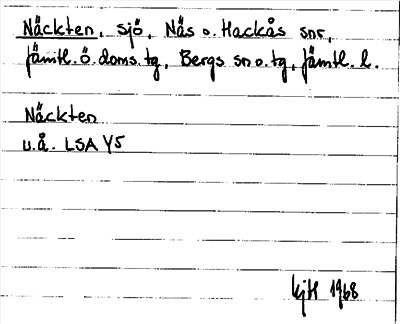 Näckten, sjö, Näs o. Hackås snr,
Jämtl. ö. doms. tg, Bergs sn o. tg, Jämtl. l.
Näckten
u.å. LSA Y5
1968